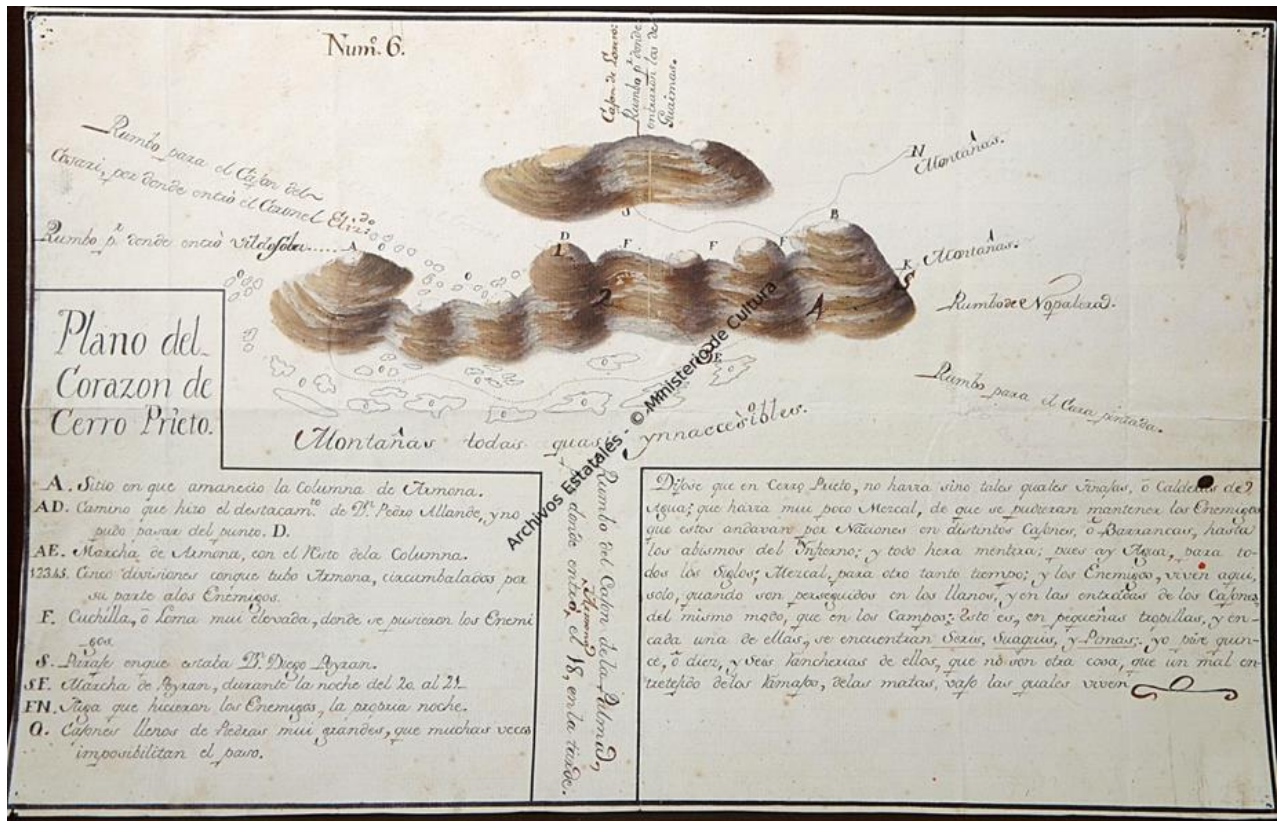 Num.º 6.
Cajon de
Rumbo p.r donde
entraron los de
Guaimas.
Rumbo para el Cajon del
Cosari, por donde entró el Coronel Eliz.do
Rumbo p.r donde entró Vildosola
A
D
F
F
F
B
S
N
K
E
1
2
3
4
5
Montañas.
Montañas.
Rumbo de Nopalera.
Rumbo para el Cara pintada.
Montañas todas quasi ynnaccèsibles.
Plano del
Corazon de
Cerro Prieto.
A. Sitio en que amaneciò la Columna de Armona.
AD. Camino que hizo el destacam.to de D.n Pedro Allande, y no
pudo pasar del punto. D.
AE. Marcha de Armona, con el Resto dela Columna.
12345. Cinco divisiones conque tubo Armona, circumbalados por
su parte alos Enemigos.
F. Cuchilla, ò Loma mui elevada, donde se pusieron los Enemi
gos.
S. Paraje enque estaba D.n Diego Peyran.
SF. Marcha de Peyran, durante la noche del 20. al 21.
FN. Fuga que hicieron los Enemigos, la propria noche.
O. Cajones llenos de Piedras mui grandes, que muchas veces
imposibilitan el paso.
Rumbo del Cajon de la Palma,
p.r donde entró Armona el 18, en la tarde.
Dijose que en Cerro Prieto, no havia sino tales quales Tinajas, ò Calderas de
Agua; que havia mui poco Mezcal, de que se pudieran mantener los Enemigos
que estos andavan por Naciones en distintos Cajones, ò Barrancas, hasta
los abismos del Infierno; y todo hera mentira; pues ay Agua, para to-
dos los Siglos; Mezcal, para otro tanto tiempo; y los Enemigos, viven aqui,
solo, quando son perseguidos en los llanos, y en las entradas de los Cajones,
del mismo modo, que en los Campos; Esto es, en pequeñas tropillas, y en
cada una de ellas, se encuentran Seris, Suaquis, y Pimas; yo pise quin-
ce, ò diez, y Seis Rancherias de ellos, que no son otra cosa, que un mal en-
tretejido delos Ramajos, delas matas, vajo las quales viven
Archivos Estatales. © Ministerio de Cultura